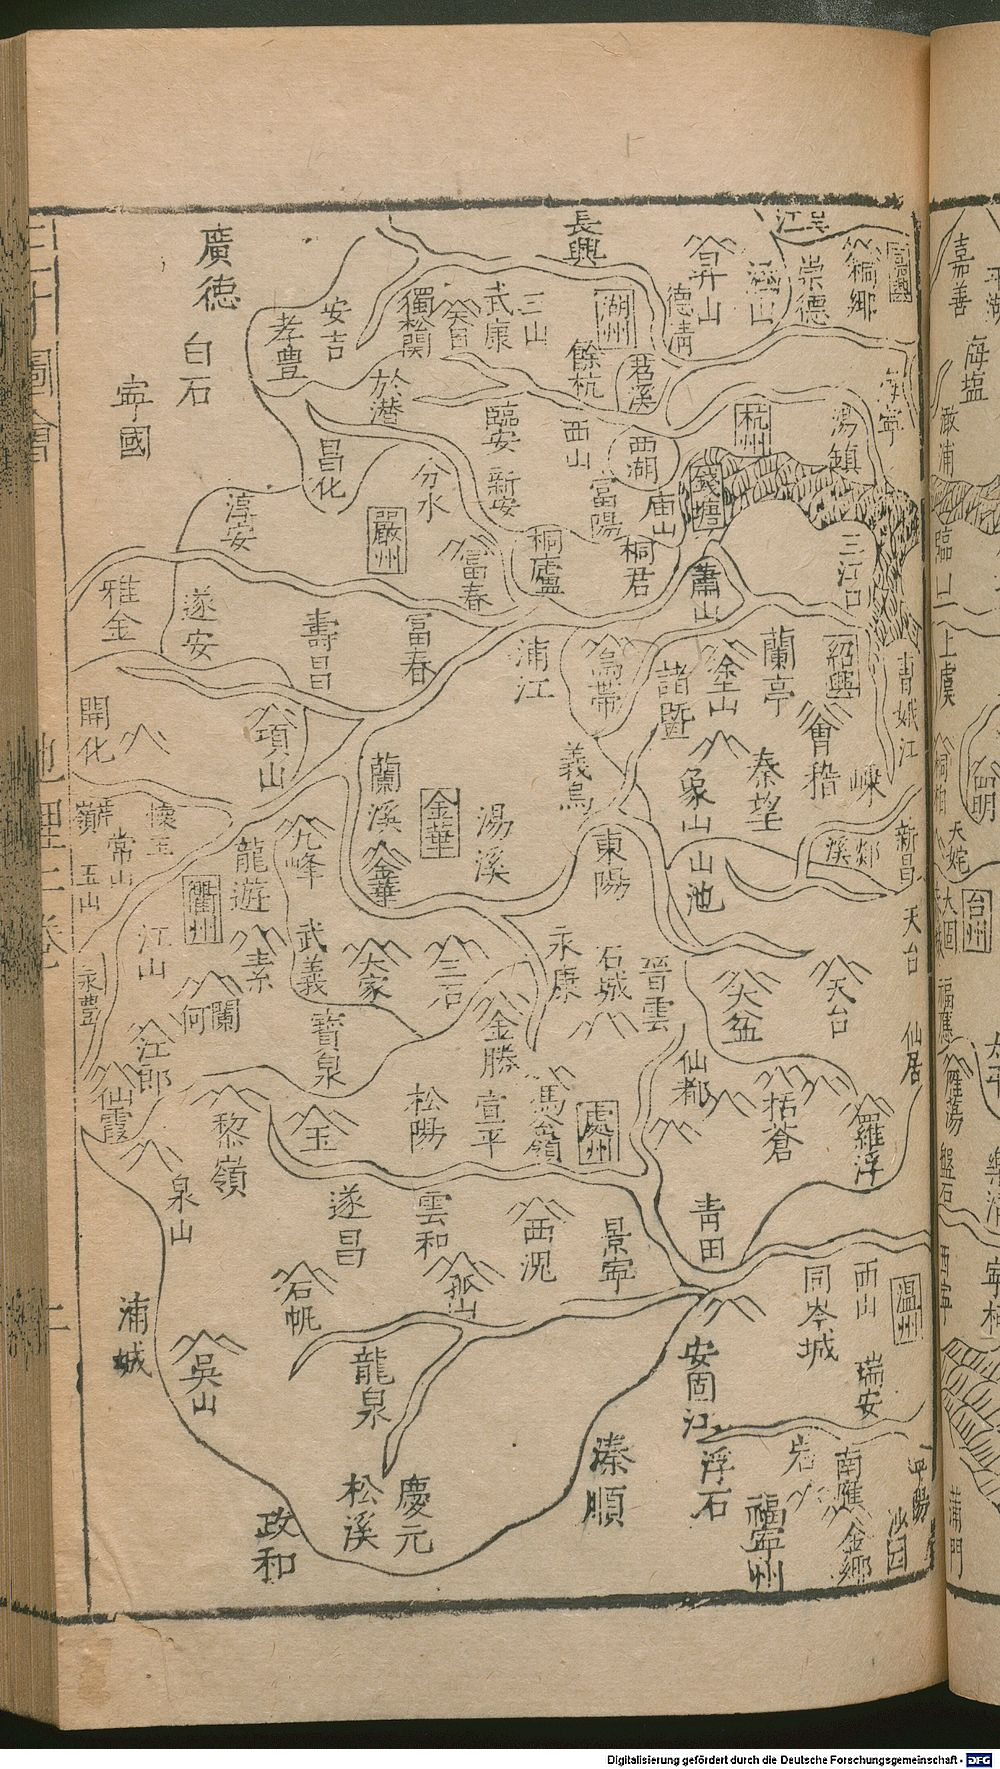 嘉善
海塩
澉浦
上虞
天姥
台州
鴈蕩
盤石
蒲門
嘉興
桐鄉
崇德
吳江
海寧
湯鎮
三江口
紹興
蘭亭
塗山
會稽
秦望
嵊
新昌
天台
仙居
天台
羅浮
温州
瑞安
平陽
沙园
金鄉
南雁
長興
昇山
德清
湖州
三山
武康
獨松関
安吉
孝豊
廣德
白石
寧國
餘杭
苕溪
杭州
錢塘
西湖
西山
臨安
新安
於潛
昌化
分水
富陽
庙山
桐君
蕭山
桐廬
富春
嚴州
淳安
遂安
壽昌
富春
浦江
烏帯
諸暨
象山
山池
義烏
東陽
開化
項山
蘭溪
金華
金華
湯溪
常山
玉山
永豊
江山
龍遊
衢州
九峰
武義
大家
三石
永康
石城
晉雲
大盆
江郎
仙霞
寶泉
金勝
宣平
松陽
馬嶺
處州
仙都
括蒼
黎嶺
玉
泉山
遂昌
雲和
景寧
青田
西山
同岑城
浦城
石帆
孤山
吳山
龍泉
安固江
浮石
福寧州
松溪
慶元
政和
溱順
三才圖會
地理三卷
Digitalisierung gefördert durch die Deutsche Forschungsgemeinschaft - DFG